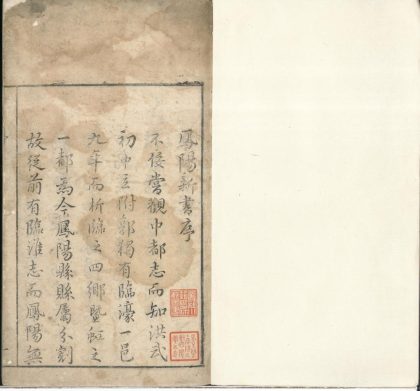 鳳陽新書序
不佞嘗觀中都志而知洪武
初中立附郭獨有臨濠一邑
九年而析臨之四鄉曁虹之
一都為今鳳陽縣縣屬分割
故從前有臨淮志而鳳陽無